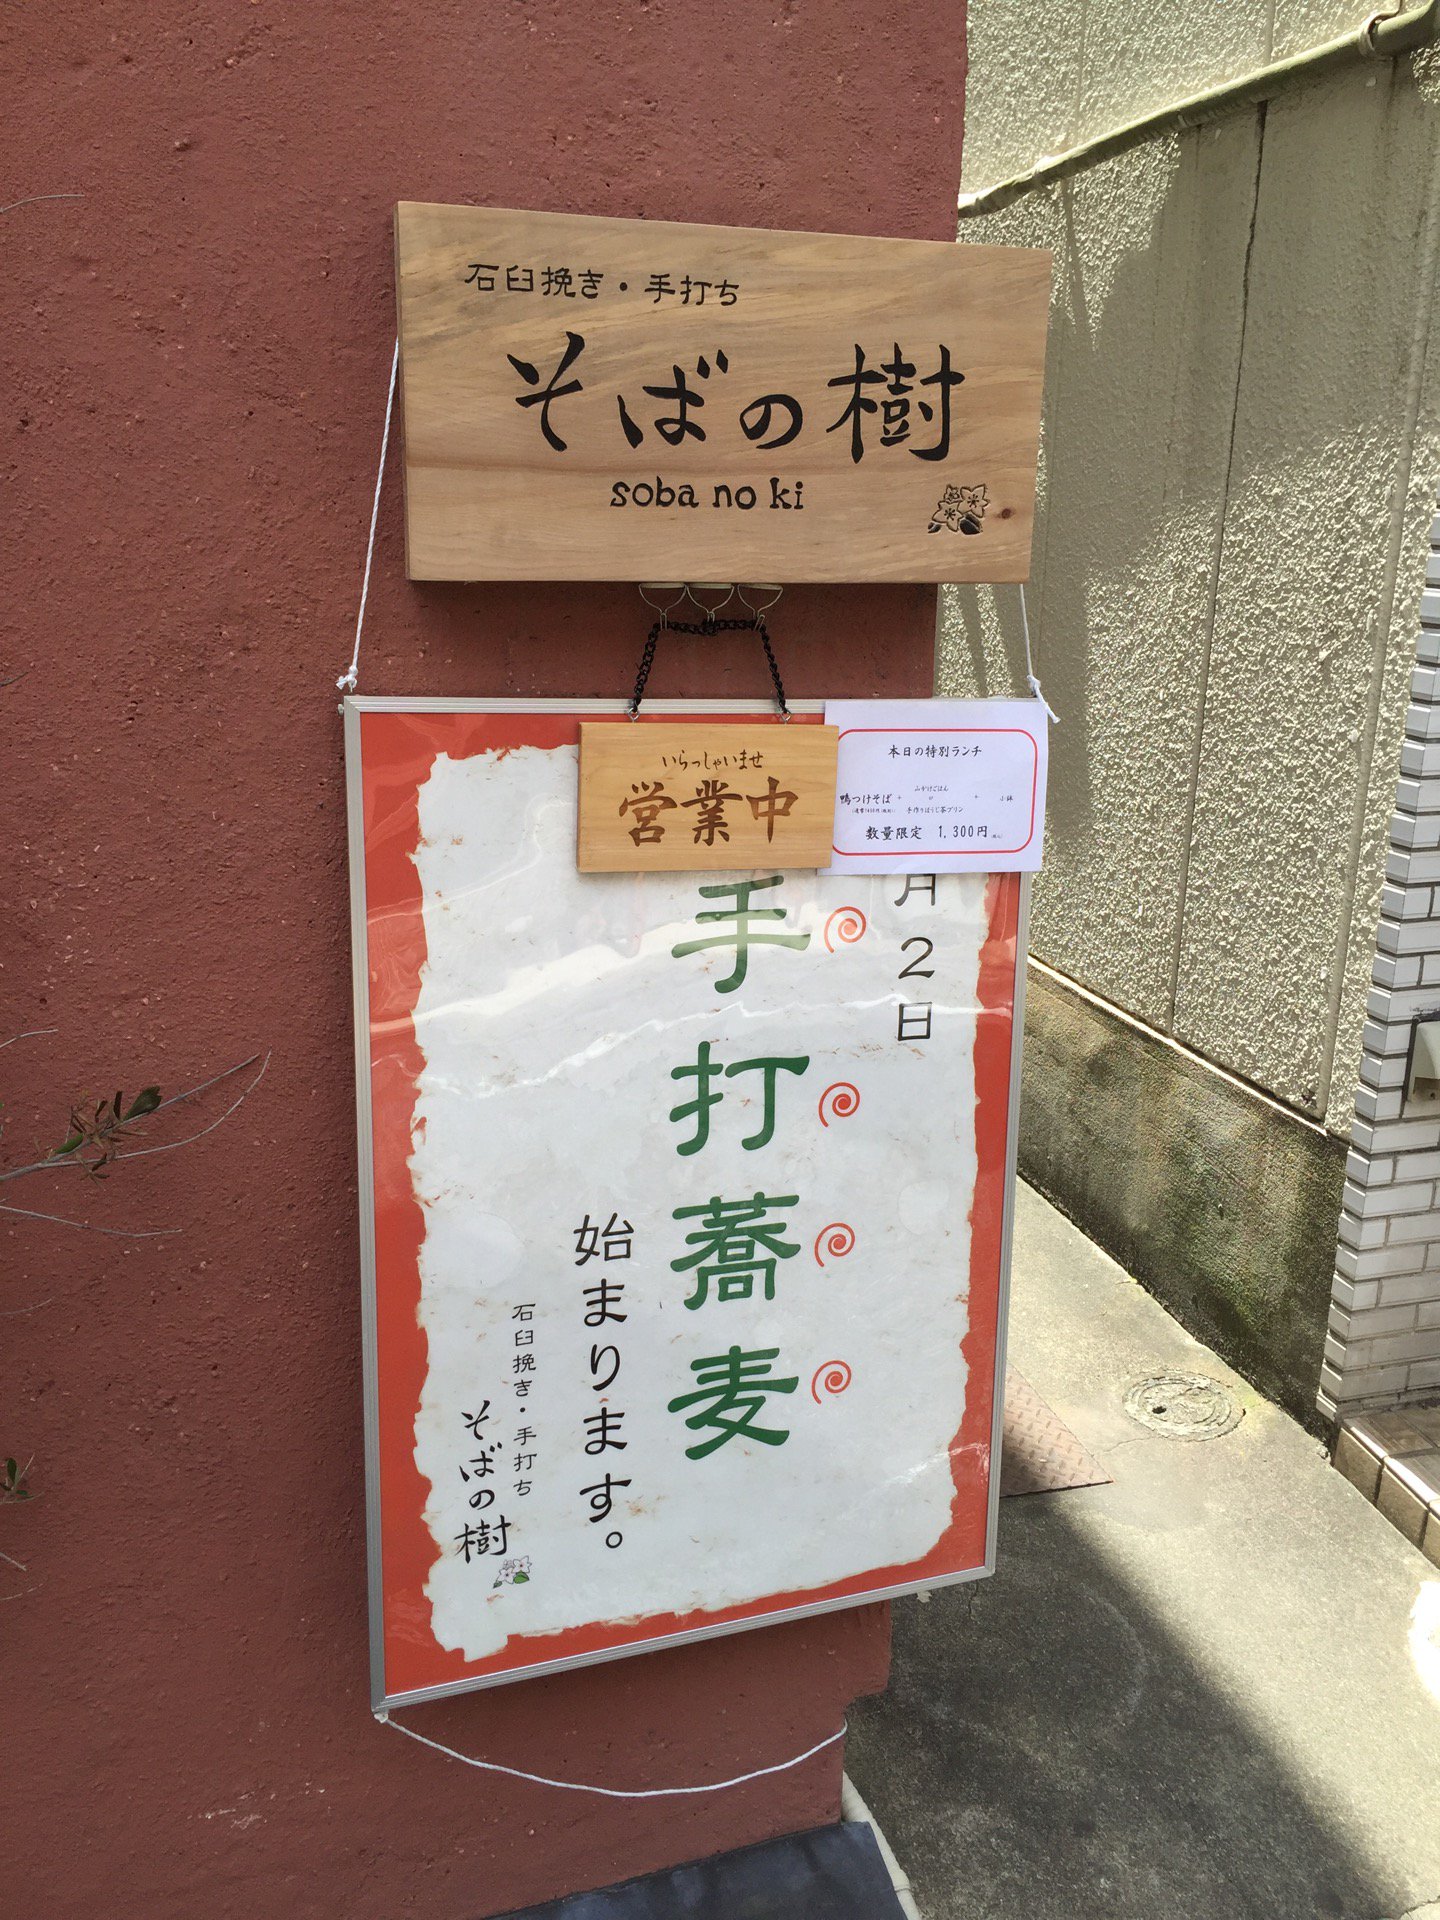 石臼挽き・手打ち
そばの樹
soba no ki
いらっしゃいませ
営業中
本日の特別ランチ
山かけごはん
鴨つけそば + or + 小鉢
手作りほうじ茶プリン
数量限定 1,300円
月2日
手打蕎麦
始まります。
石臼挽き・手打ち
そばの樹